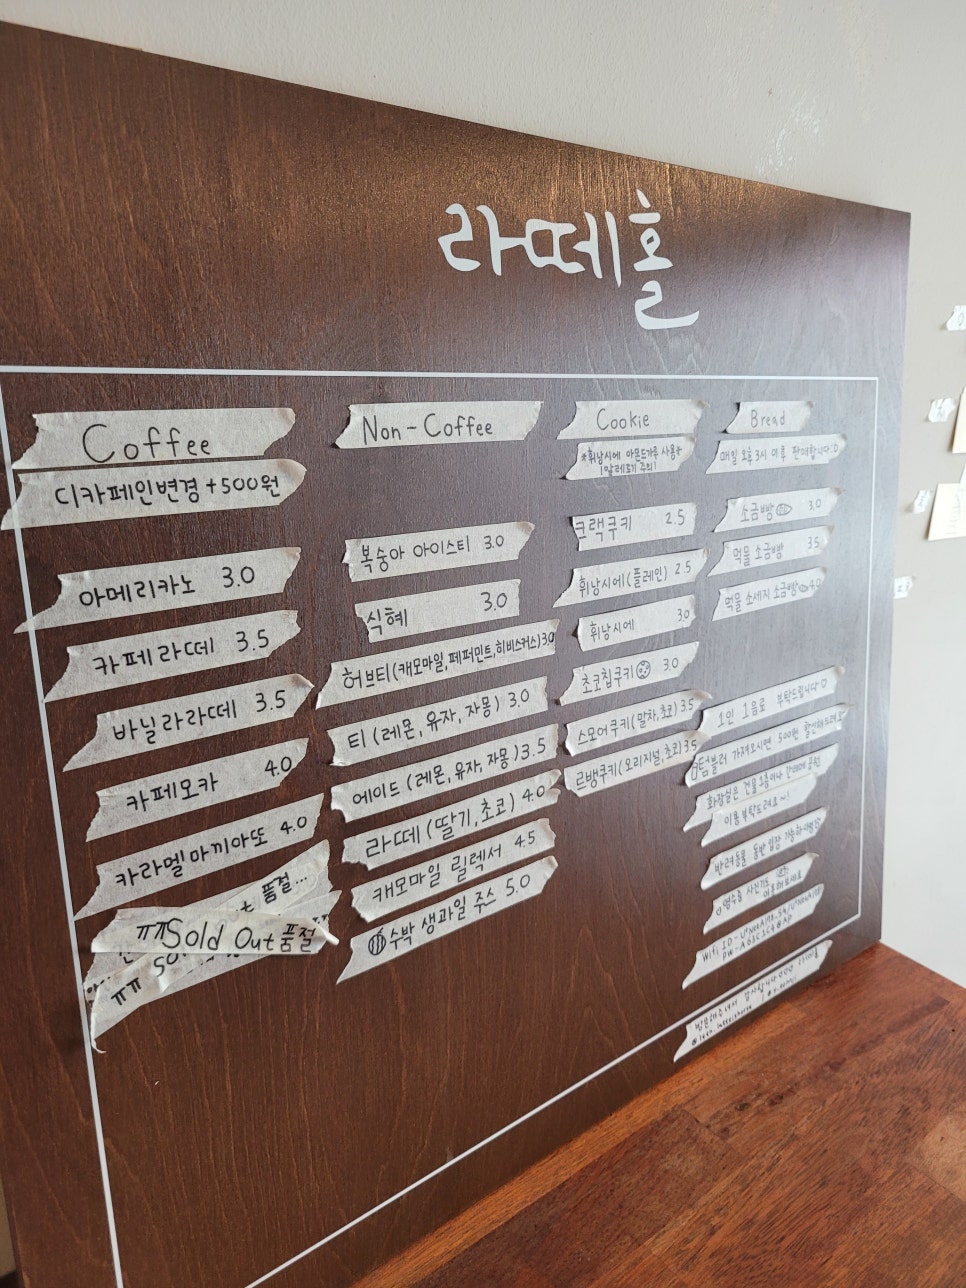 라떼홀
Coffee
디카페인변경 +500원
아메리카노 3.0
카페라떼 3.5
바닐라라떼 3.5
카페모카 4.0
카라멜마끼아또 4.0
품절...
ㅠㅠSold Out 품절
ㅠㅠ
Non-Coffee
복숭아 아이스티 3.0
식혜 3.0
허브티(캐모마일,페퍼민트,히비스커스)3.0
티 (레몬, 유자, 자몽) 3.0
에이드 (레몬, 유자, 자몽) 3.5
라떼 (딸기, 초코) 4.0
캐모마일 릴렉서 4.5
수박 생과일 주스 5.0
Cookie
*휘낭시에 아몬드가루 사용*
(알레르기 주의)
크랙쿠키 2.5
휘낭시에(플레인) 2.5
휘낭시에 3.0
초코칩쿠키 3.0
스모어쿠키(말차,초코) 3.5
르뱅쿠키(오리지널,초코) 3.5
Bread
매일 오후 3시 이후 판매합니다:D
소금빵 3.0
먹물 소금빵 3.5
먹물 소세지 소금빵 4.0
1인 1음료 부탁드립니다:D
텀블러 가져오시면 500원 할인해드려요
화장실은 건물 3층이나
이용 부탁드려요~!
반려동물 동반 입장 가능
영수증 사진기도
이용해보세요
Wifi ID-
PW-
방문해주셔서 감사합니다